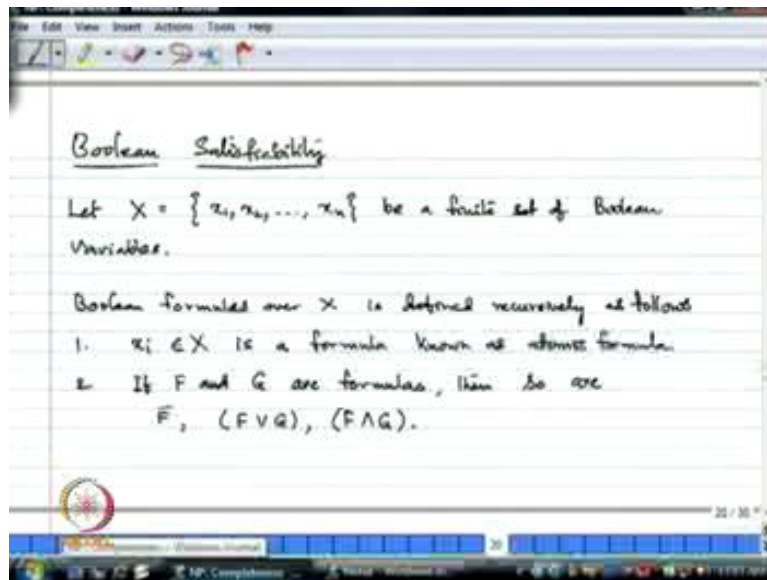 File Edit View Insert Actions Tools Help
Boolean Satisfiability
Let X = { x₁, x₂, ..., xₙ } be a finite set of Boolean
Variables.
Boolean formulas over X is defined recursively as follows
1. xᵢ ∈ X is a formula known as atomic formula
2 If F and G are formulas, then so are
F̅, (F ∨ G), (F ∧ G).
20 / 30
20